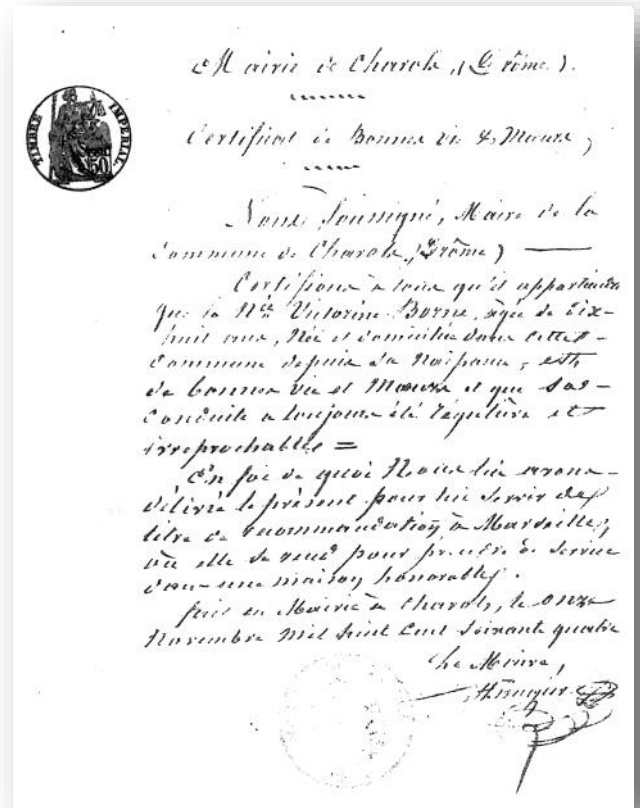 Mairie de Charols, (Drôme).
TIMBRE IMPÉRIAL
50
Certificat de Bonnes vie & Moeurs,
Nous, Soussigné, Maire de la
Commune de Charols, (Drôme)
Certifions à tous qu'il appartiendra
que la Née Victorine Borne, agée de dix-
huit ans, Née et domiciliée dans cette
Commune depuis sa Naissance, est
de bonnes vie et Moeurs et que sa
conduite a toujours été régulière et
irreprochable =
En foi de quoi Nous lui avons
délivré le présent pour lui servir de
titre de recommandation à Marseille,
où elle se rend pour prendre du service
dans une maison honorable.
fait en Mairie à Charols, le onze
Novembre Mil huit Cent Soixante quatre
Le Maire,